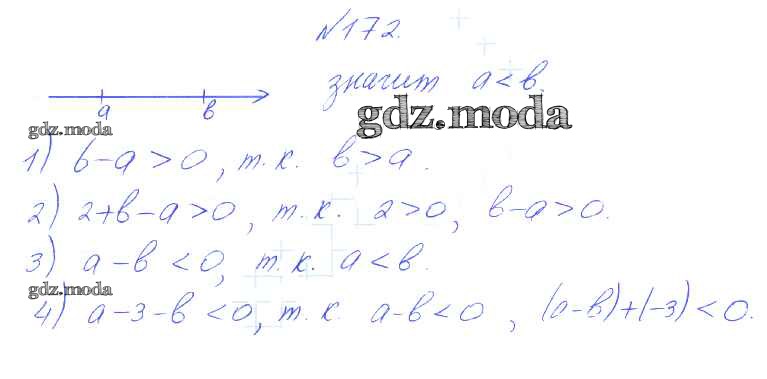 №172.
значит a<b.
a b
gdz.moda
gdz.moda
1) b-a>0, т.к. b>a.
2) 2+b-a>0, т.к. 2>0, b-a>0.
3) a-b<0, т.к. a<b.
gdz.moda
4) a-3-b<0, т.к. a-b<0, (a-b)+(-3)<0.